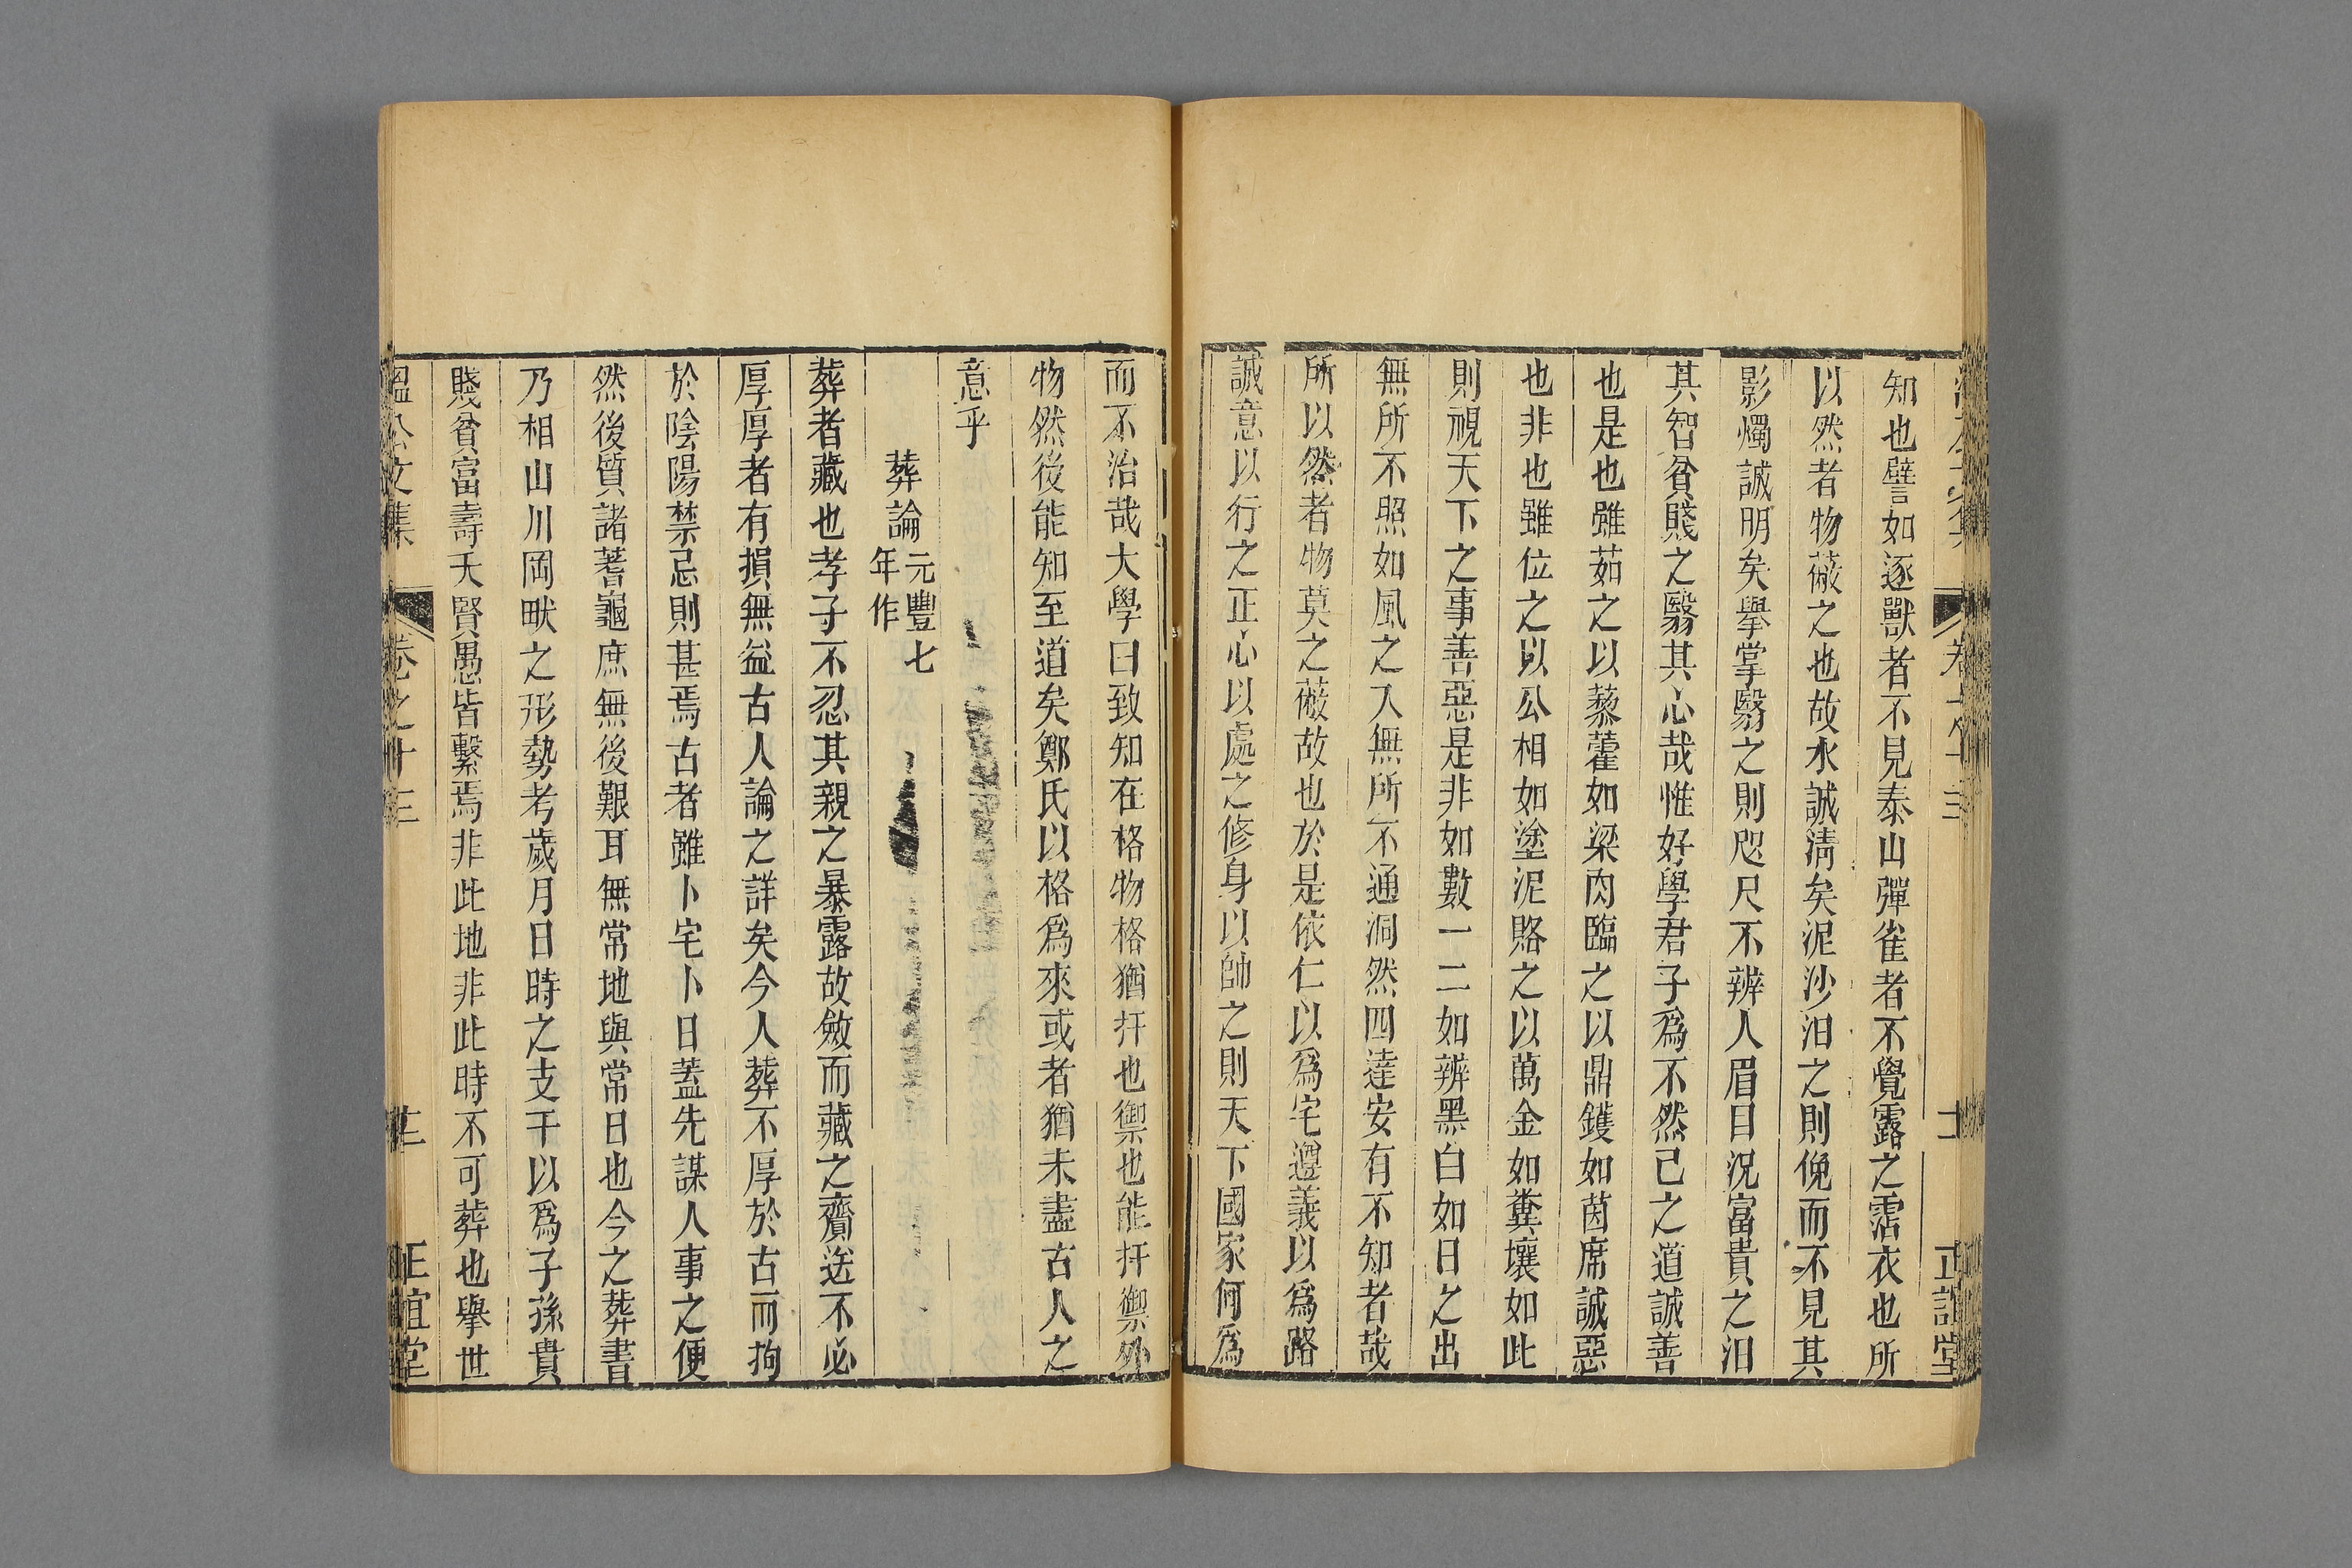 知也譬如逐獸者不見泰山彈雀者不覺露之霑衣也所
以然者物蔽之也故水誠淸矣泥沙汩之則俛而不見其
影燭誠明矣舉掌翳之則咫尺不辨人眉目況富貴之汩
其智貧賤之翳其心哉惟好學君子爲不然己之道誠善
也是也雖茹之以藜藿如梁肉臨之以鼎鑊如茵席誠惡
也非也雖位之以公相如塗泥賂之以萬金如糞壤如此
則視天下之事善惡是非如數一二如辨黑白如日之出
無所不照如風之入無所不通洞然四達安有不知者哉
所以然者物莫之蔽故也於是依仁以爲宅遵義以爲路
誠意以行之正心以處之修身以帥之則天下國家何爲
而不治哉大學曰致知在格物格猶扞也禦也能扞禦外
物然後能知至道矣鄭氏以格爲來或者猶未盡古人之
意乎
葬論元豐七
年作
葬者藏也孝子不忍其親之暴露故斂而藏之齎送不必
厚厚者有損無益古人論之詳矣今人葬不厚於古而拘
於陰陽禁忌則甚焉古者雖卜宅卜日蓋先謀人事之便
然後質諸蓍龜庶無後艱耳無常地與常日也今之葬書
乃相山川岡畎之形勢考歲月日時之支干以爲子孫貴
賤貧富壽夭賢愚皆繫焉非此地非此時不可葬也舉世
溫公文集 卷之十三 十二 正誼堂